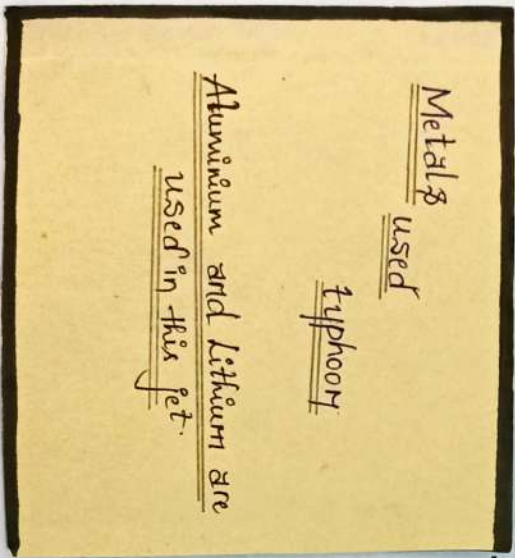 Metals
used
typhoon
Aluminium and Lithium are
used in this jet.